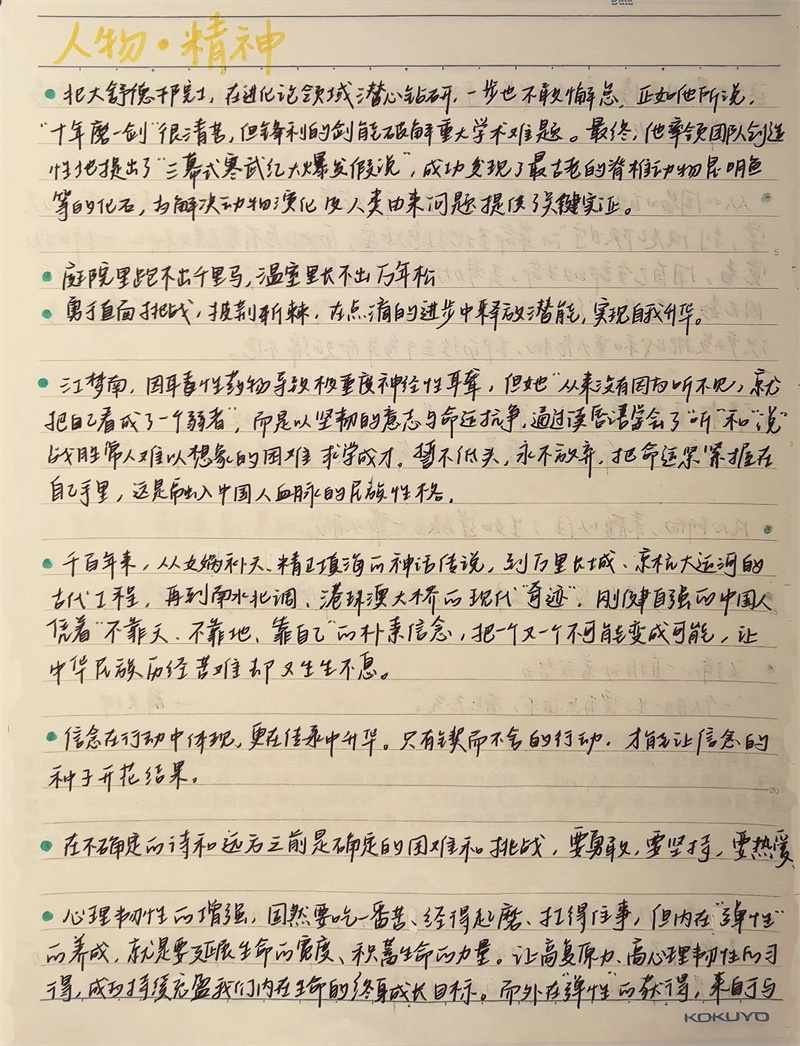 人物·精神
• 北大舒德干院士，在进化论领域潜心钻研，一步也不敢懈怠，正如他所说，
"十年磨一剑"很清苦，但锋利的剑能破解重大学术难题。最终，他率领团队创造
性地提出了"三幕式寒武纪大爆发假说"，成功发现了最古老的脊椎动物昆明鱼
等的化石，为解决动物演化及人类由来问题提供了关键实证。
• 庭院里跑不出千里马，温室里长不出万年松
• 勇于直面挑战，披荆斩棘，在点滴的进步中释放潜能，实现自我升华。
• 江梦南，因耳毒性药物导致极重度神经性耳聋，但她"从来没有因为听不见，就
把自己看成了一个弱者"，而是以坚韧的意志与命运抗争，通过读唇语学会了"听"和"说"
战胜常人难以想象的困难 求学成才。誓不低头，永不放弃，把命运紧紧握在
自己手里，这是融入中国人血脉的民族性格。
• 千百年来，从女娲补天、精卫填海的神话传说，到万里长城、京杭大运河的
古代工程，再到南水北调、港珠澳大桥的现代"奇迹"，刚健自强的中国人
凭着"不靠天、不靠地、靠自己"的朴素信念，把一个又一个不可能变成可能，让
中华民族历经苦难却又生生不息。
• 信念在行动中体现，更在传承中升华。只有锲而不舍的行动，才能让信念的
种子开花结果。
• 在不确定的诗和远方之前是确定的困难和挑战，要勇敢，要坚持，要热爱
• 心理韧性的增强，固然要吃一番苦、经得起磨、扛得住事，但内在"弹性"
的养成，就是要延展生命的宽度、积蓄生命的力量。让高复原力、高心理韧性的习
得，成为持续充盈我们内在生命的终身成长目标。而外在"弹性"的获得，来自于与
KOKUYO